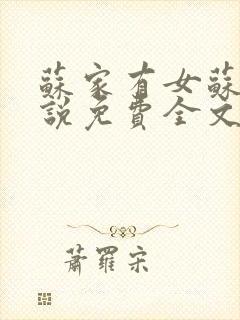 蘇家有女蘇
說免費全文
蕭羅宋